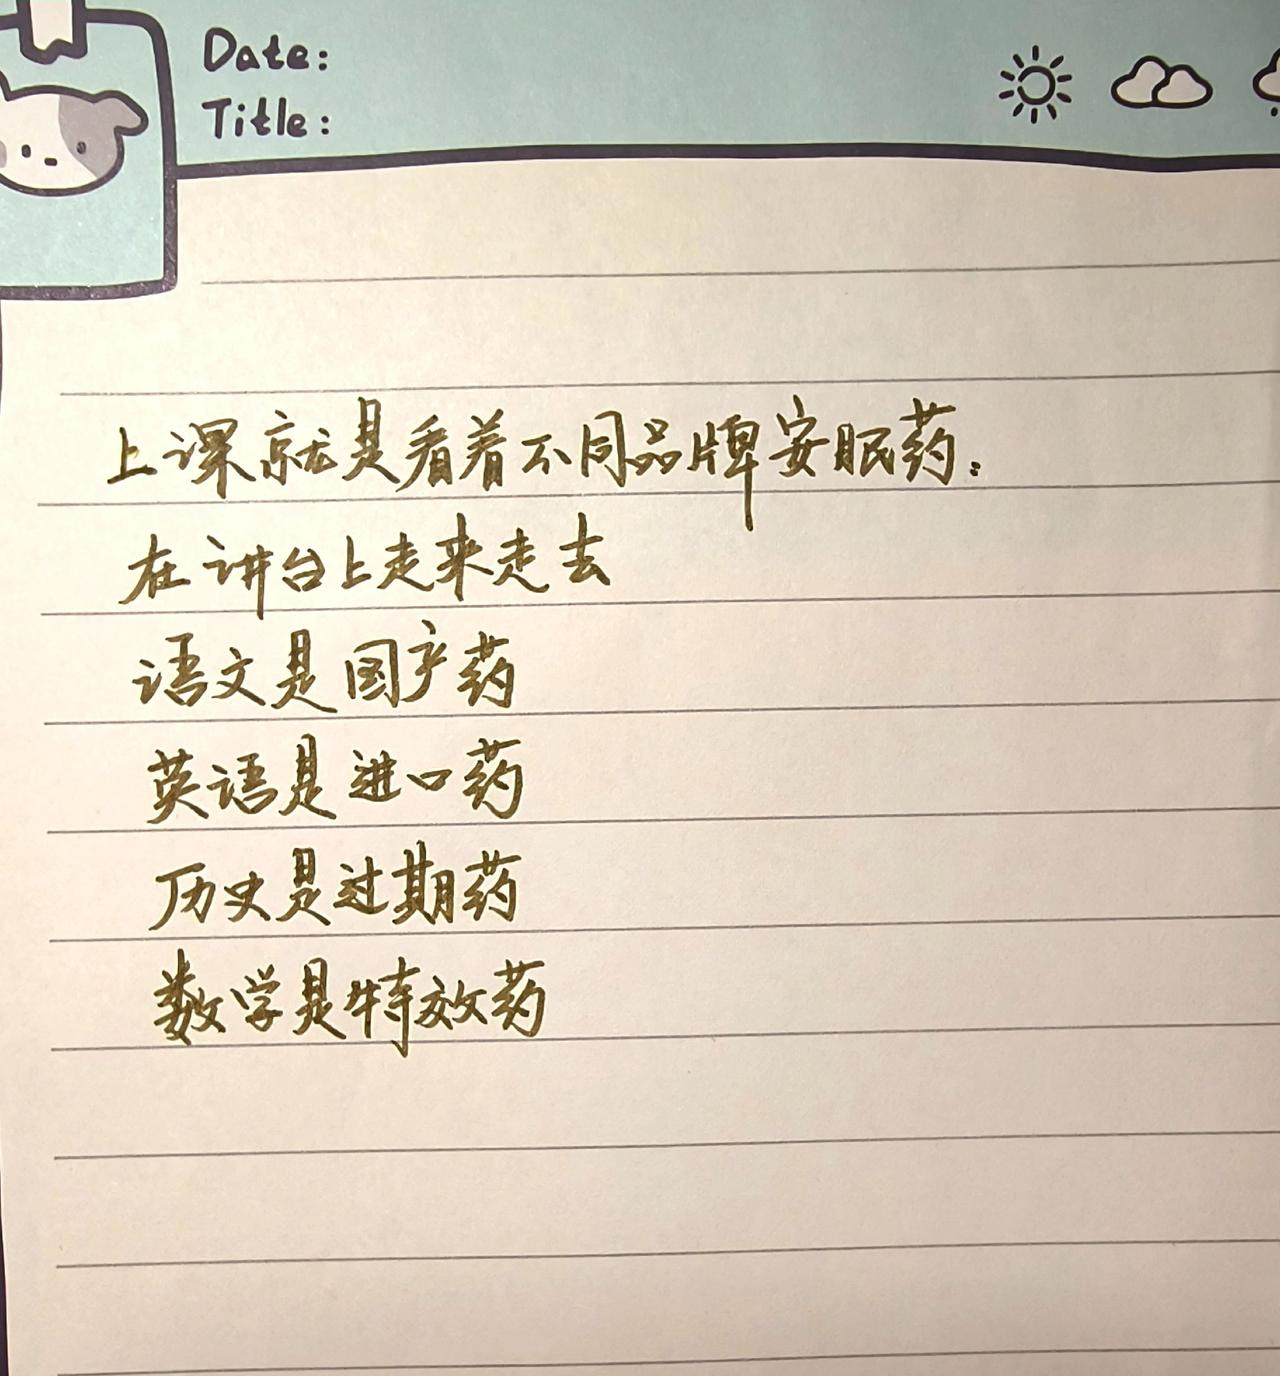 Date:
Title:
上课就是看着不同品牌安眠药:
在讲台上走来走去
语文是国产药
英语是进口药
历史是过期药
数学是特效药